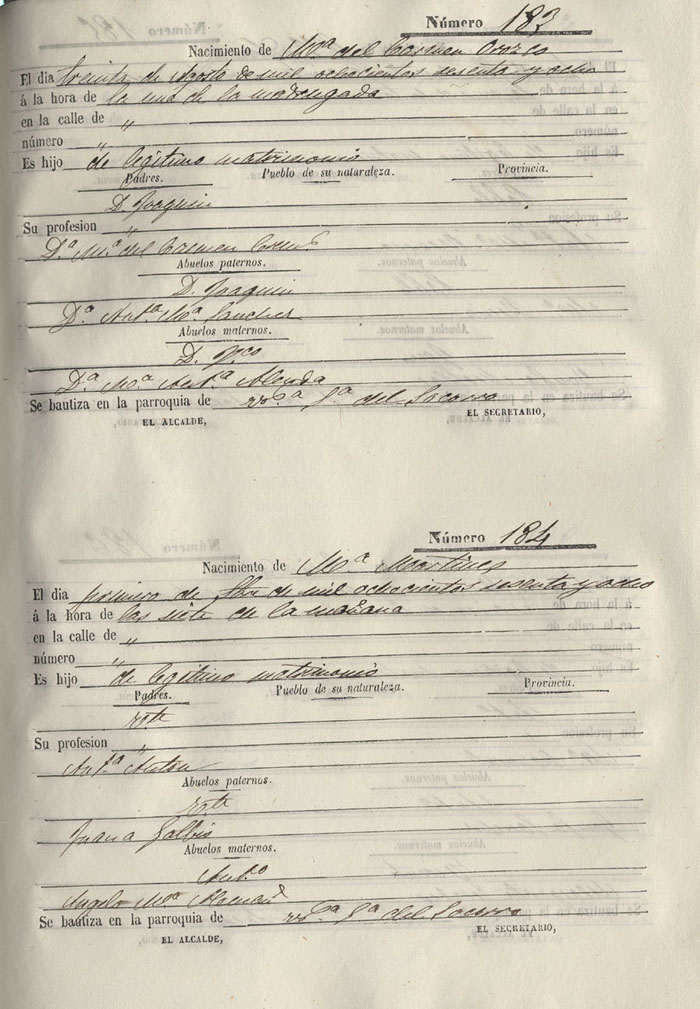 Número 183
Nacimiento de Mª del Carmen Orozco
El dia treinta de Agosto de mil ochocientos sesenta y ocho
á la hora de la una de la madrugada
en la calle de "
número "
Es hijo de legitimo matrimonio
Padres. Pueblo de su naturaleza. Provincia.
D. Joaquin
Su profesion "
D.ª Mª del Carmen
Abuelos paternos.
D. Joaquin
Dª Antª Mª Sanchez
Abuelos maternos.
D. Fco
Dª Mª Antª Alenda
Se bautiza en la parroquia de Sª del Socorro
EL ALCALDE, EL SECRETARIO,
Número 184
Nacimiento de Mª Martines
El dia primero de de mil ochocientos sesenta y ocho
á la hora de las siete de la mañana
en la calle de "
número "
Es hijo de legitimo matrimonio
Padres. Pueblo de su naturaleza. Provincia.
Su profesion "
Antª Anton
Abuelos paternos.
Juana Galbis
Abuelos maternos.
Antº
Angela Mª
Se bautiza en la parroquia de Sª del Socorro
EL ALCALDE, EL SECRETARIO,